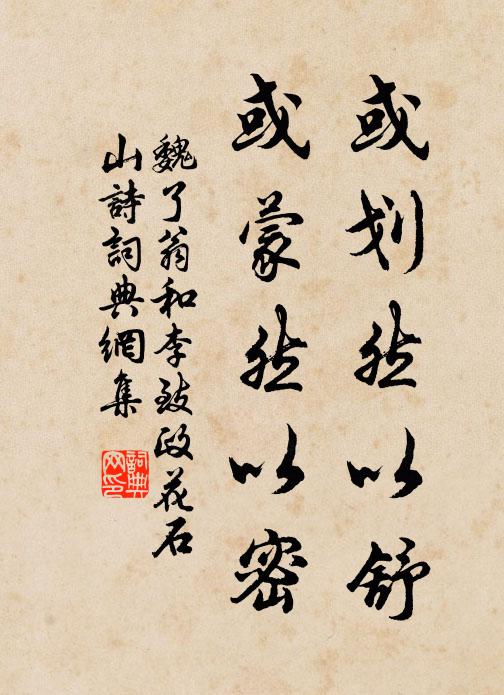 或划然以舒
或蒙然以密
魏了翁和李致政花石
山詩詞典網集
詞典
网印